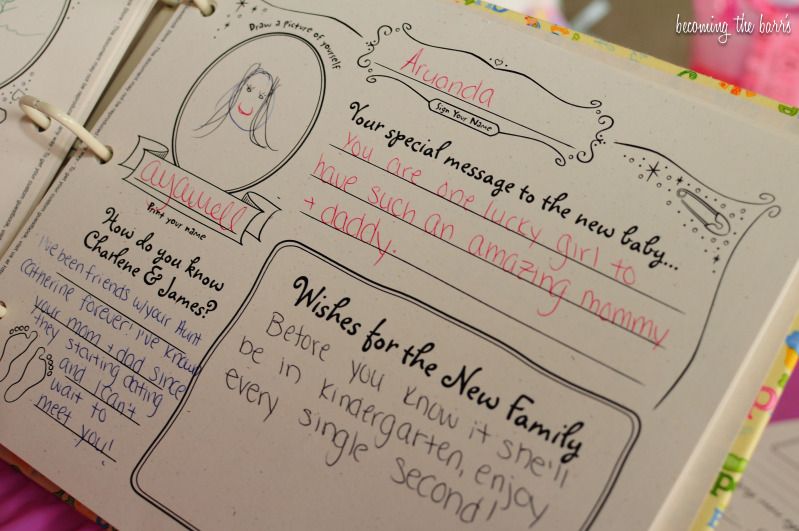 becoming the barr's
Draw a picture of yourself
Aruanda
Sign Your Name
ayawell
Print your name
Your special message to the new baby...
you are one lucky girl to
have such an amazing mommy
+ daddy.
How do you know
Charlene & James?
I've been friends w/your Aunt
Catherine forever! I've known
your mom + dad since
they starting dating
and I can't
wait to
meet you!
Wishes for the New Family
Before you know it she'll
be in kindergarten, enjoy
every single second!